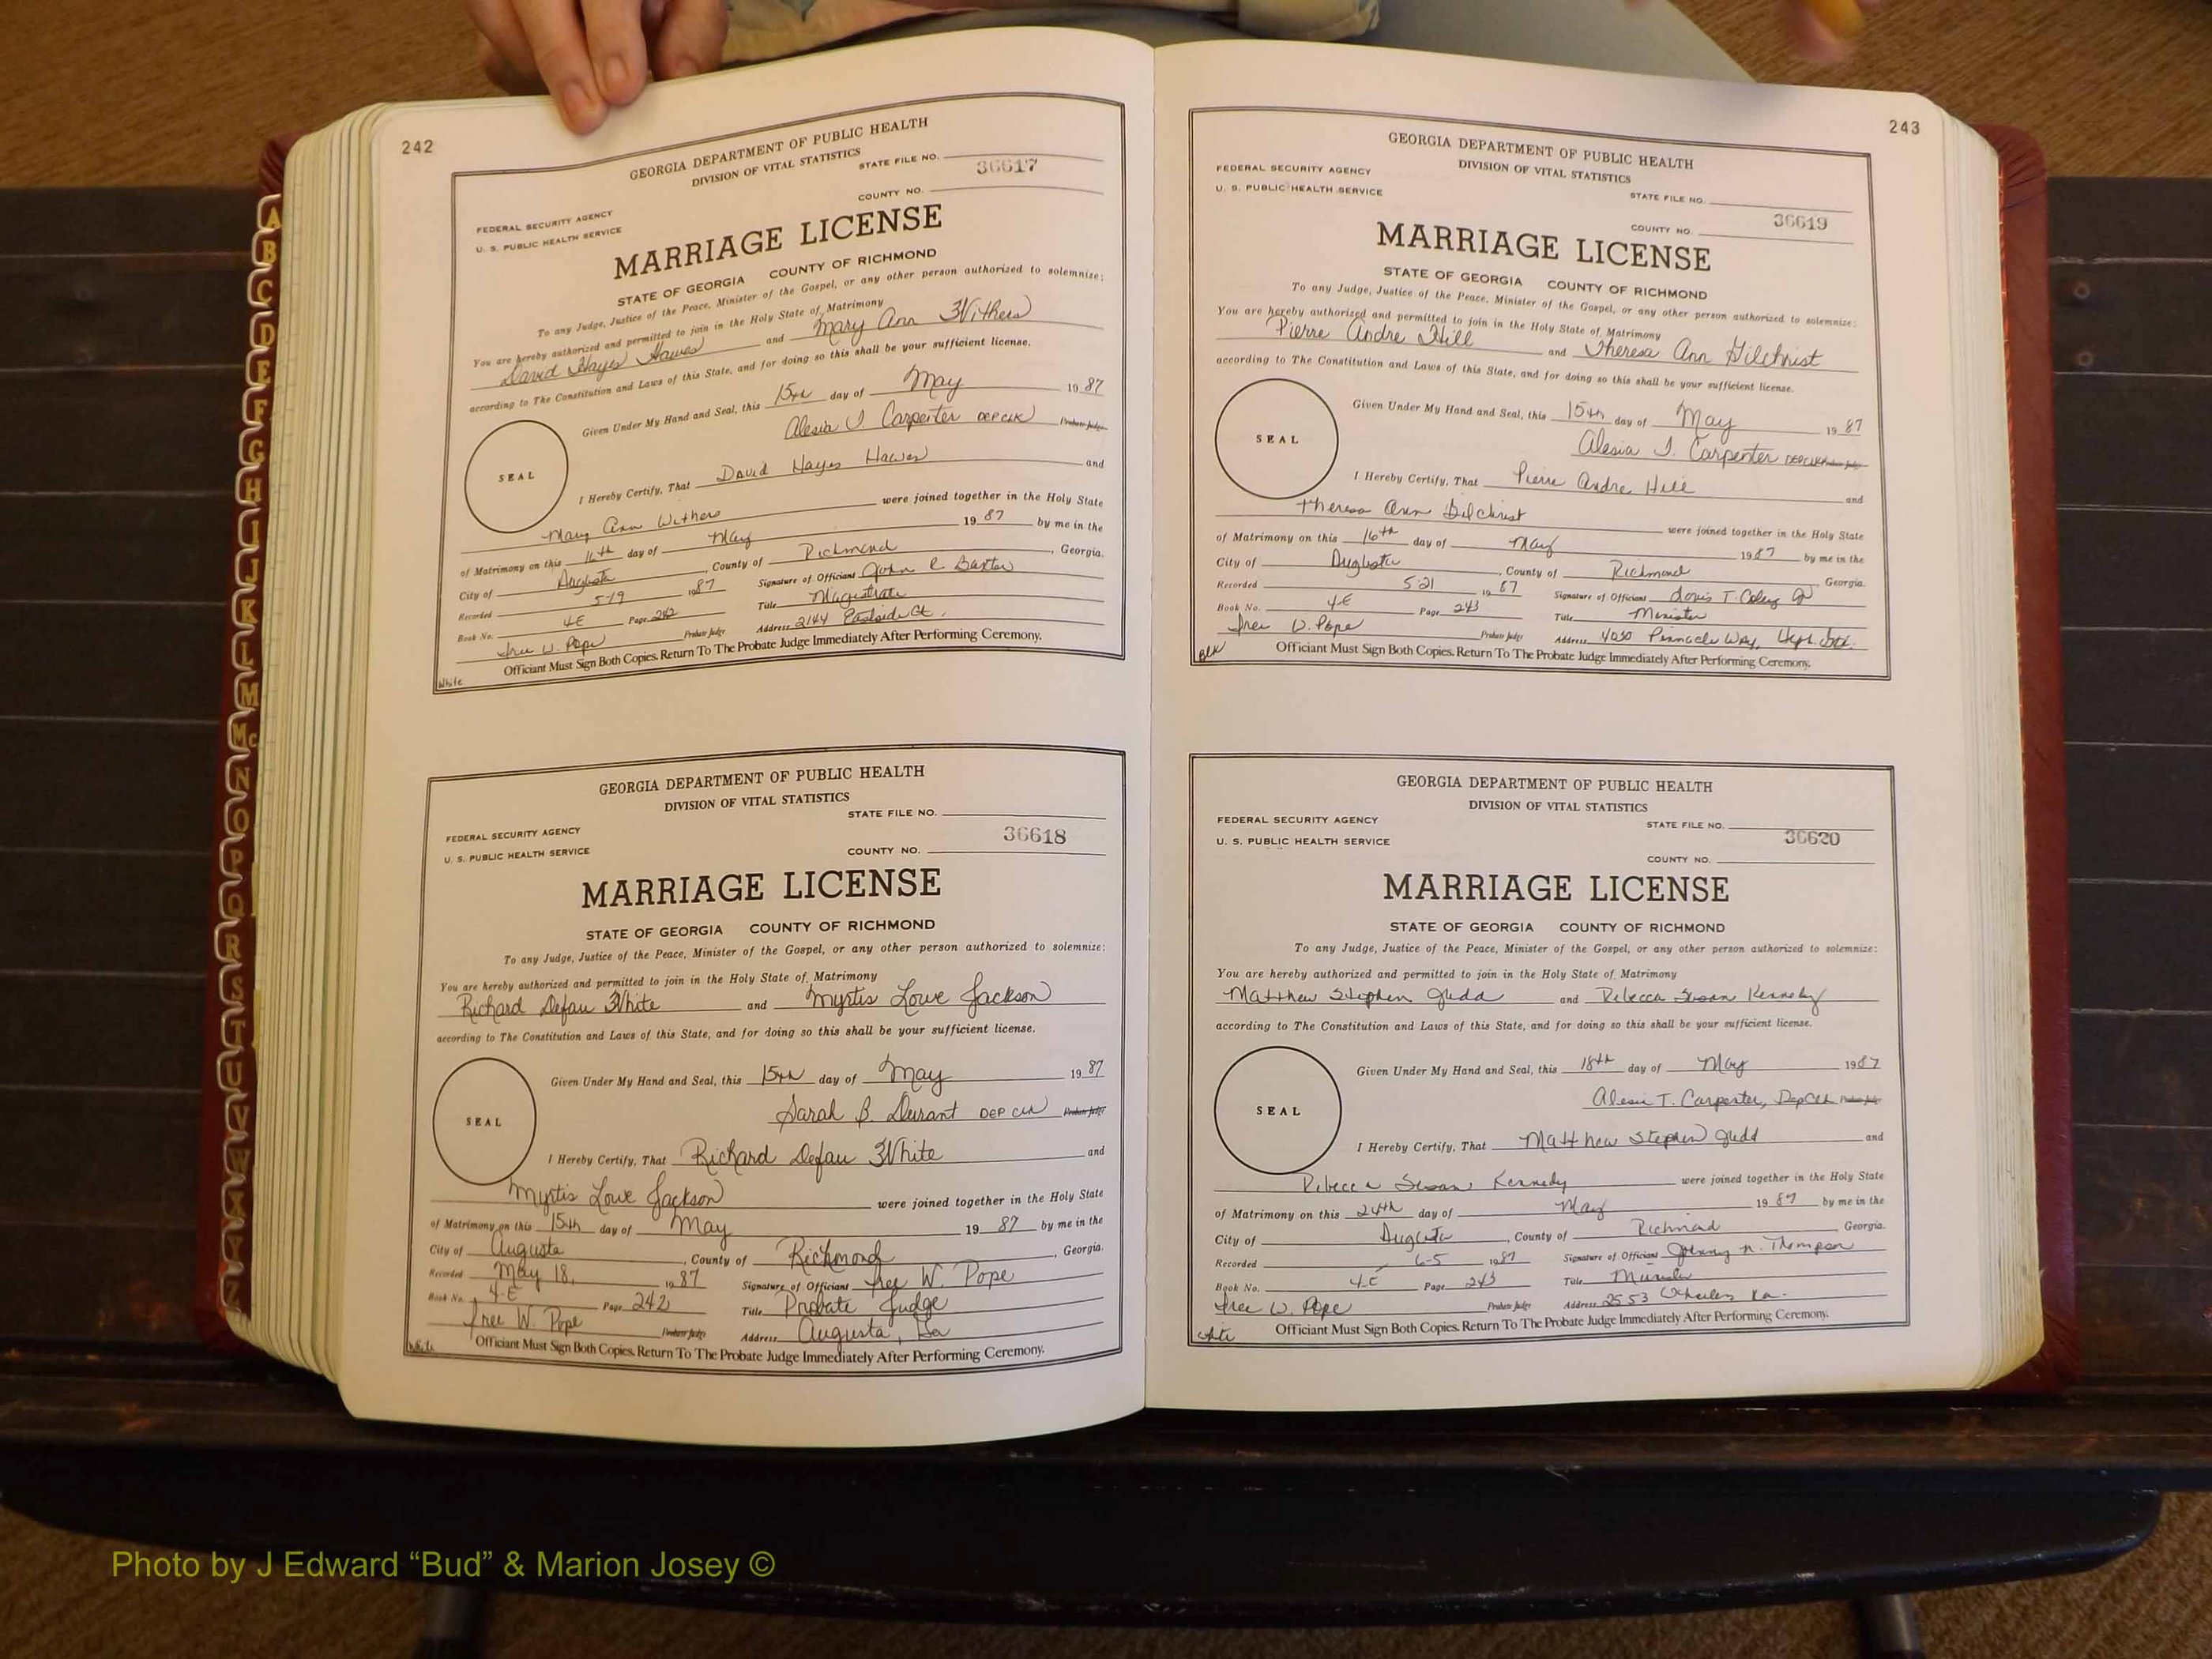 242
GEORGIA DEPARTMENT OF PUBLIC HEALTH
DIVISION OF VITAL STATISTICS
STATE FILE NO.
36617
FEDERAL SECURITY AGENCY
COUNTY NO.
U. S. PUBLIC HEALTH SERVICE
MARRIAGE LICENSE
STATE OF GEORGIA COUNTY OF RICHMOND
To any Judge, Justice of the Peace, Minister of the Gospel, or any other person authorized to solemnize:
You are hereby authorized and permitted to join in the Holy State of Matrimony
David Hayes Hawes and Mary Ann Withers
according to The Constitution and Laws of this State, and for doing so this shall be your sufficient license.
Given Under My Hand and Seal, this 15th day of May 1987
Alesia J. Carpenter DEP CLK Probate Judge
SEAL
I Hereby Certify, That David Hayes Hawes and
Mary Ann Withers were joined together in the Holy State
of Matrimony on this 16th day of May 1987 by me in the
City of Augusta, County of Richmond, Georgia.
Recorded 5-19 1987 Signature of Officiant John R Baxter
Book No. 4-E Page 242 Title Magistrate
Pope Probate Judge Address 2144 Eastside Ct.
Officiant Must Sign Both Copies. Return To The Probate Judge Immediately After Performing Ceremony.
White
GEORGIA DEPARTMENT OF PUBLIC HEALTH
DIVISION OF VITAL STATISTICS
STATE FILE NO.
FEDERAL SECURITY AGENCY
36618
U. S. PUBLIC HEALTH SERVICE
COUNTY NO.
MARRIAGE LICENSE
STATE OF GEORGIA COUNTY OF RICHMOND
To any Judge, Justice of the Peace, Minister of the Gospel, or any other person authorized to solemnize:
You are hereby authorized and permitted to join in the Holy State of Matrimony
Richard Defau White and Myrtis Lowe Jackson
according to The Constitution and Laws of this State, and for doing so this shall be your sufficient license.
Given Under My Hand and Seal, this 15th day of May 1987
Sarah B. Durant DEP CLK Probate Judge
SEAL
I Hereby Certify, That Richard Defau White and
Myrtis Lowe Jackson were joined together in the Holy State
of Matrimony on this 15th day of May 1987 by me in the
City of Augusta, County of Richmond, Georgia.
Recorded May 18, 1987 Signature of Officiant W. Pope
Book No. 4-E Page 242 Title Probate Judge
W. Pope Probate Judge Address Augusta, Ga
Officiant Must Sign Both Copies. Return To The Probate Judge Immediately After Performing Ceremony.
White
243
GEORGIA DEPARTMENT OF PUBLIC HEALTH
DIVISION OF VITAL STATISTICS
FEDERAL SECURITY AGENCY
U. S. PUBLIC HEALTH SERVICE
STATE FILE NO.
36619
COUNTY NO.
MARRIAGE LICENSE
STATE OF GEORGIA COUNTY OF RICHMOND
To any Judge, Justice of the Peace, Minister of the Gospel, or any other person authorized to solemnize:
You are hereby authorized and permitted to join in the Holy State of Matrimony
Pierre Andre Hill and Theresa Ann Gilchrist
according to The Constitution and Laws of this State, and for doing so this shall be your sufficient license.
Given Under My Hand and Seal, this 15th day of May 1987
Alesia J. Carpenter DEP CLK Probate Judge
SEAL
I Hereby Certify, That Pierre Andre Hill and
Theresa Ann Gilchrist were joined together in the Holy State
of Matrimony on this 16th day of May 1987 by me in the
City of Augusta, County of Richmond, Georgia.
Recorded 5-21 1987 Signature of Officiant T.
Book No. 4-E Page 243 Title Minister
W. Pope Probate Judge Address 4050 Pinnacle Way,
Officiant Must Sign Both Copies. Return To The Probate Judge Immediately After Performing Ceremony.
Blk
GEORGIA DEPARTMENT OF PUBLIC HEALTH
DIVISION OF VITAL STATISTICS
FEDERAL SECURITY AGENCY
STATE FILE NO.
U. S. PUBLIC HEALTH SERVICE
36620
COUNTY NO.
MARRIAGE LICENSE
STATE OF GEORGIA COUNTY OF RICHMOND
To any Judge, Justice of the Peace, Minister of the Gospel, or any other person authorized to solemnize:
You are hereby authorized and permitted to join in the Holy State of Matrimony
Matthew Stephen Judd and Rebecca Susan Kennedy
according to The Constitution and Laws of this State, and for doing so this shall be your sufficient license.
Given Under My Hand and Seal, this 18th day of May 1987
Alesia T. Carpenter, Dep Clk Probate Judge
SEAL
I Hereby Certify, That Matthew Stephen Judd and
Rebecca Susan Kennedy were joined together in the Holy State
of Matrimony on this 24th day of May 1987 by me in the
City of Augusta, County of Richmond, Georgia.
Recorded 6-5 1987 Signature of Officiant Johnny N. Thompson
Book No. 4-E Page 243 Title Minister
W. Pope Probate Judge Address 2553
Officiant Must Sign Both Copies. Return To The Probate Judge Immediately After Performing Ceremony.
White
A
B
C
D
E
F
G
H
I
J
K
L
M
Mc
N
O
P
Q
R
S
T
U
V
W
X
Y
Z
Photo by J Edward “Bud” & Marion Josey ©